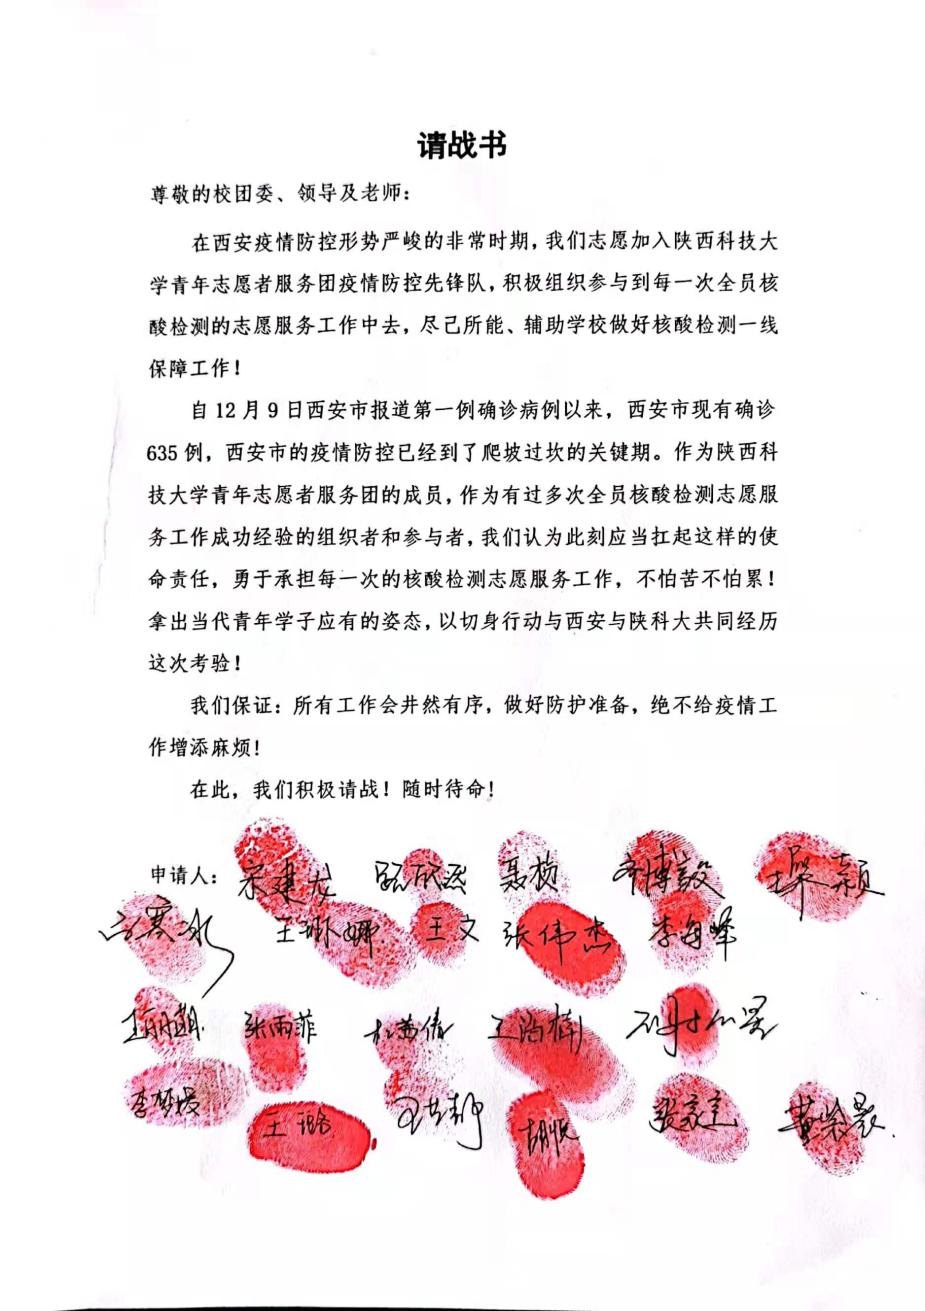 请战书
尊敬的校团委、领导及老师：
在西安疫情防控形势严峻的非常时期，我们志愿加入陕西科技大
学青年志愿者服务团疫情防控先锋队，积极组织参与到每一次全员核
酸检测的志愿服务工作中去，尽己所能、辅助学校做好核酸检测一线
保障工作！
自 12 月 9 日西安市报道第一例确诊病例以来，西安市现有确诊
635 例，西安市的疫情防控已经到了爬坡过坎的关键期。作为陕西科
技大学青年志愿者服务团的成员，作为有过多次全员核酸检测志愿服
务工作成功经验的组织者和参与者，我们认为此刻应当扛起这样的使
命责任，勇于承担每一次的核酸检测志愿服务工作，不怕苦不怕累！
拿出当代青年学子应有的姿态，以切身行动与西安与陕科大共同经历
这次考验！
我们保证：所有工作会井然有序，做好防护准备，绝不给疫情工
作增添麻烦！
在此，我们积极请战！随时待命！
申请人：宋建龙 聂桢 齐博毅
王文 张伟杰 李海峰
张雨菲
李梦媛 王璐 胡悦